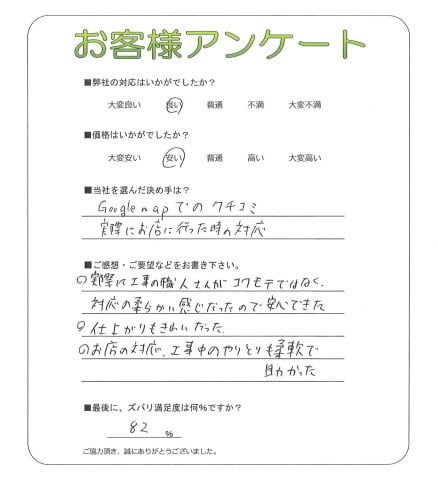 お客様アンケート
■弊社の対応はいかがでしたか?
大変良い 良い 普通 不満 大変不満
■価格はいかがでしたか?
大変安い 安い 普通 高い 大変高い
■当社を選んだ決め手は?
Google map での クチコミ
実際にお店に行った時の対応
■ご感想・ご要望などをお書き下さい。
○実際に工事の職人さんがコワモテではなく、
対応の柔らかい感じだったので安心できた
○仕上がりもきれいだった、
○お店の対応、工事中のやりとりも柔軟で
助かった
■最後に、ズバリ満足度は何%ですか?
82 %
ご協力頂き、誠にありがとうございました。